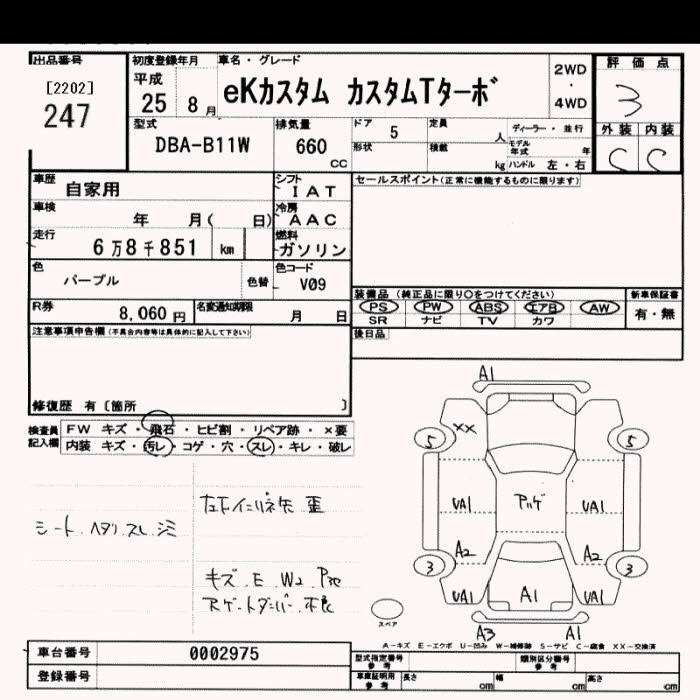 出品番号
[2202]
247
初度登録年月
平成
25 8月
車名・グレード
eKカスタム カスタムTターボ
2WD
・
4WD
評価点
3
外装 内装
C C
型式
DBA-B11W
排気量
660
cc
ドア
5
形状
定員
人
積載
kg
ディーラー・並行
モデル年式 年
ハンドル 左・右
車歴
自家用
シフト
IAT
車検
年 月( 日)
冷房
AAC
走行
6万8千851 km
燃料
ガソリン
色
パープル
色替
色コード
V09
R券
8,060円
名変通知期限
月 日
セールスポイント(正常に機能するものに限ります)
装備品(純正品に限り〇をつけてください)
PS PW ABS エアB AW
SR ナビ TV カワ
新車保証書
有・無
後日品
注意事項申告欄(不具合内容等は具体的に記入して下さい)
修復歴 有〔箇所 〕
検査員
記入欄
FW キズ・飛石・ヒビ割・リペア跡・×要
内装 キズ・汚レ・コゲ・穴・スレ・キレ・破レ
シート ヘタリ スレ シミ
キズ.E.W2
不良
A1
XX
5 5
UA1 UA1
A2 A2
3 3
UA1 A1 UA1
A3 A1
スペア
A-キズ E-エクボ U-凹み W-補修跡 S-サビ C-腐食 XX-交換済
車台番号
0002975
登録番号
型式指定番号
参考
類別区分番号
参考
車庫証明用
参考
長さ cm 幅 cm 高さ cm